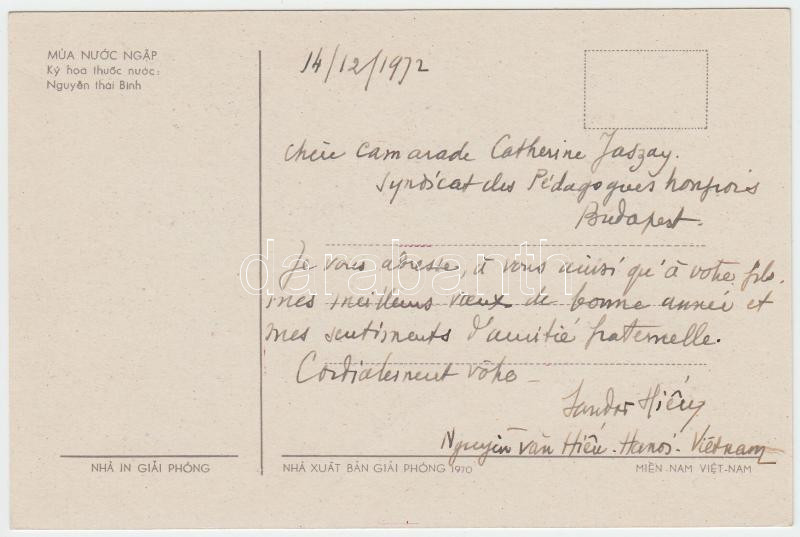 MÙA NƯỚC NGẬP
Ký họa thuốc nước:
Nguyễn thái Bình
14/12/1972
Chère camarade Catherine Jaszay.
Syndicat des Pédagogues hongrois
Budapest.
Je vous adresse, à vous ainsi qu'à votre fils,
mes meilleurs vœux de bonne année et
mes sentiments d'amitié fraternelle.
Cordialement vôtre –
Sandor Hiêu
Nguyễn văn Hiếu - Hanoi - Viêtnam
NHÀ IN GIẢI PHÓNG
NHÀ XUẤT BẢN GIẢI PHÓNG 1970
MIỀN NAM VIỆT-NAM
darabanth